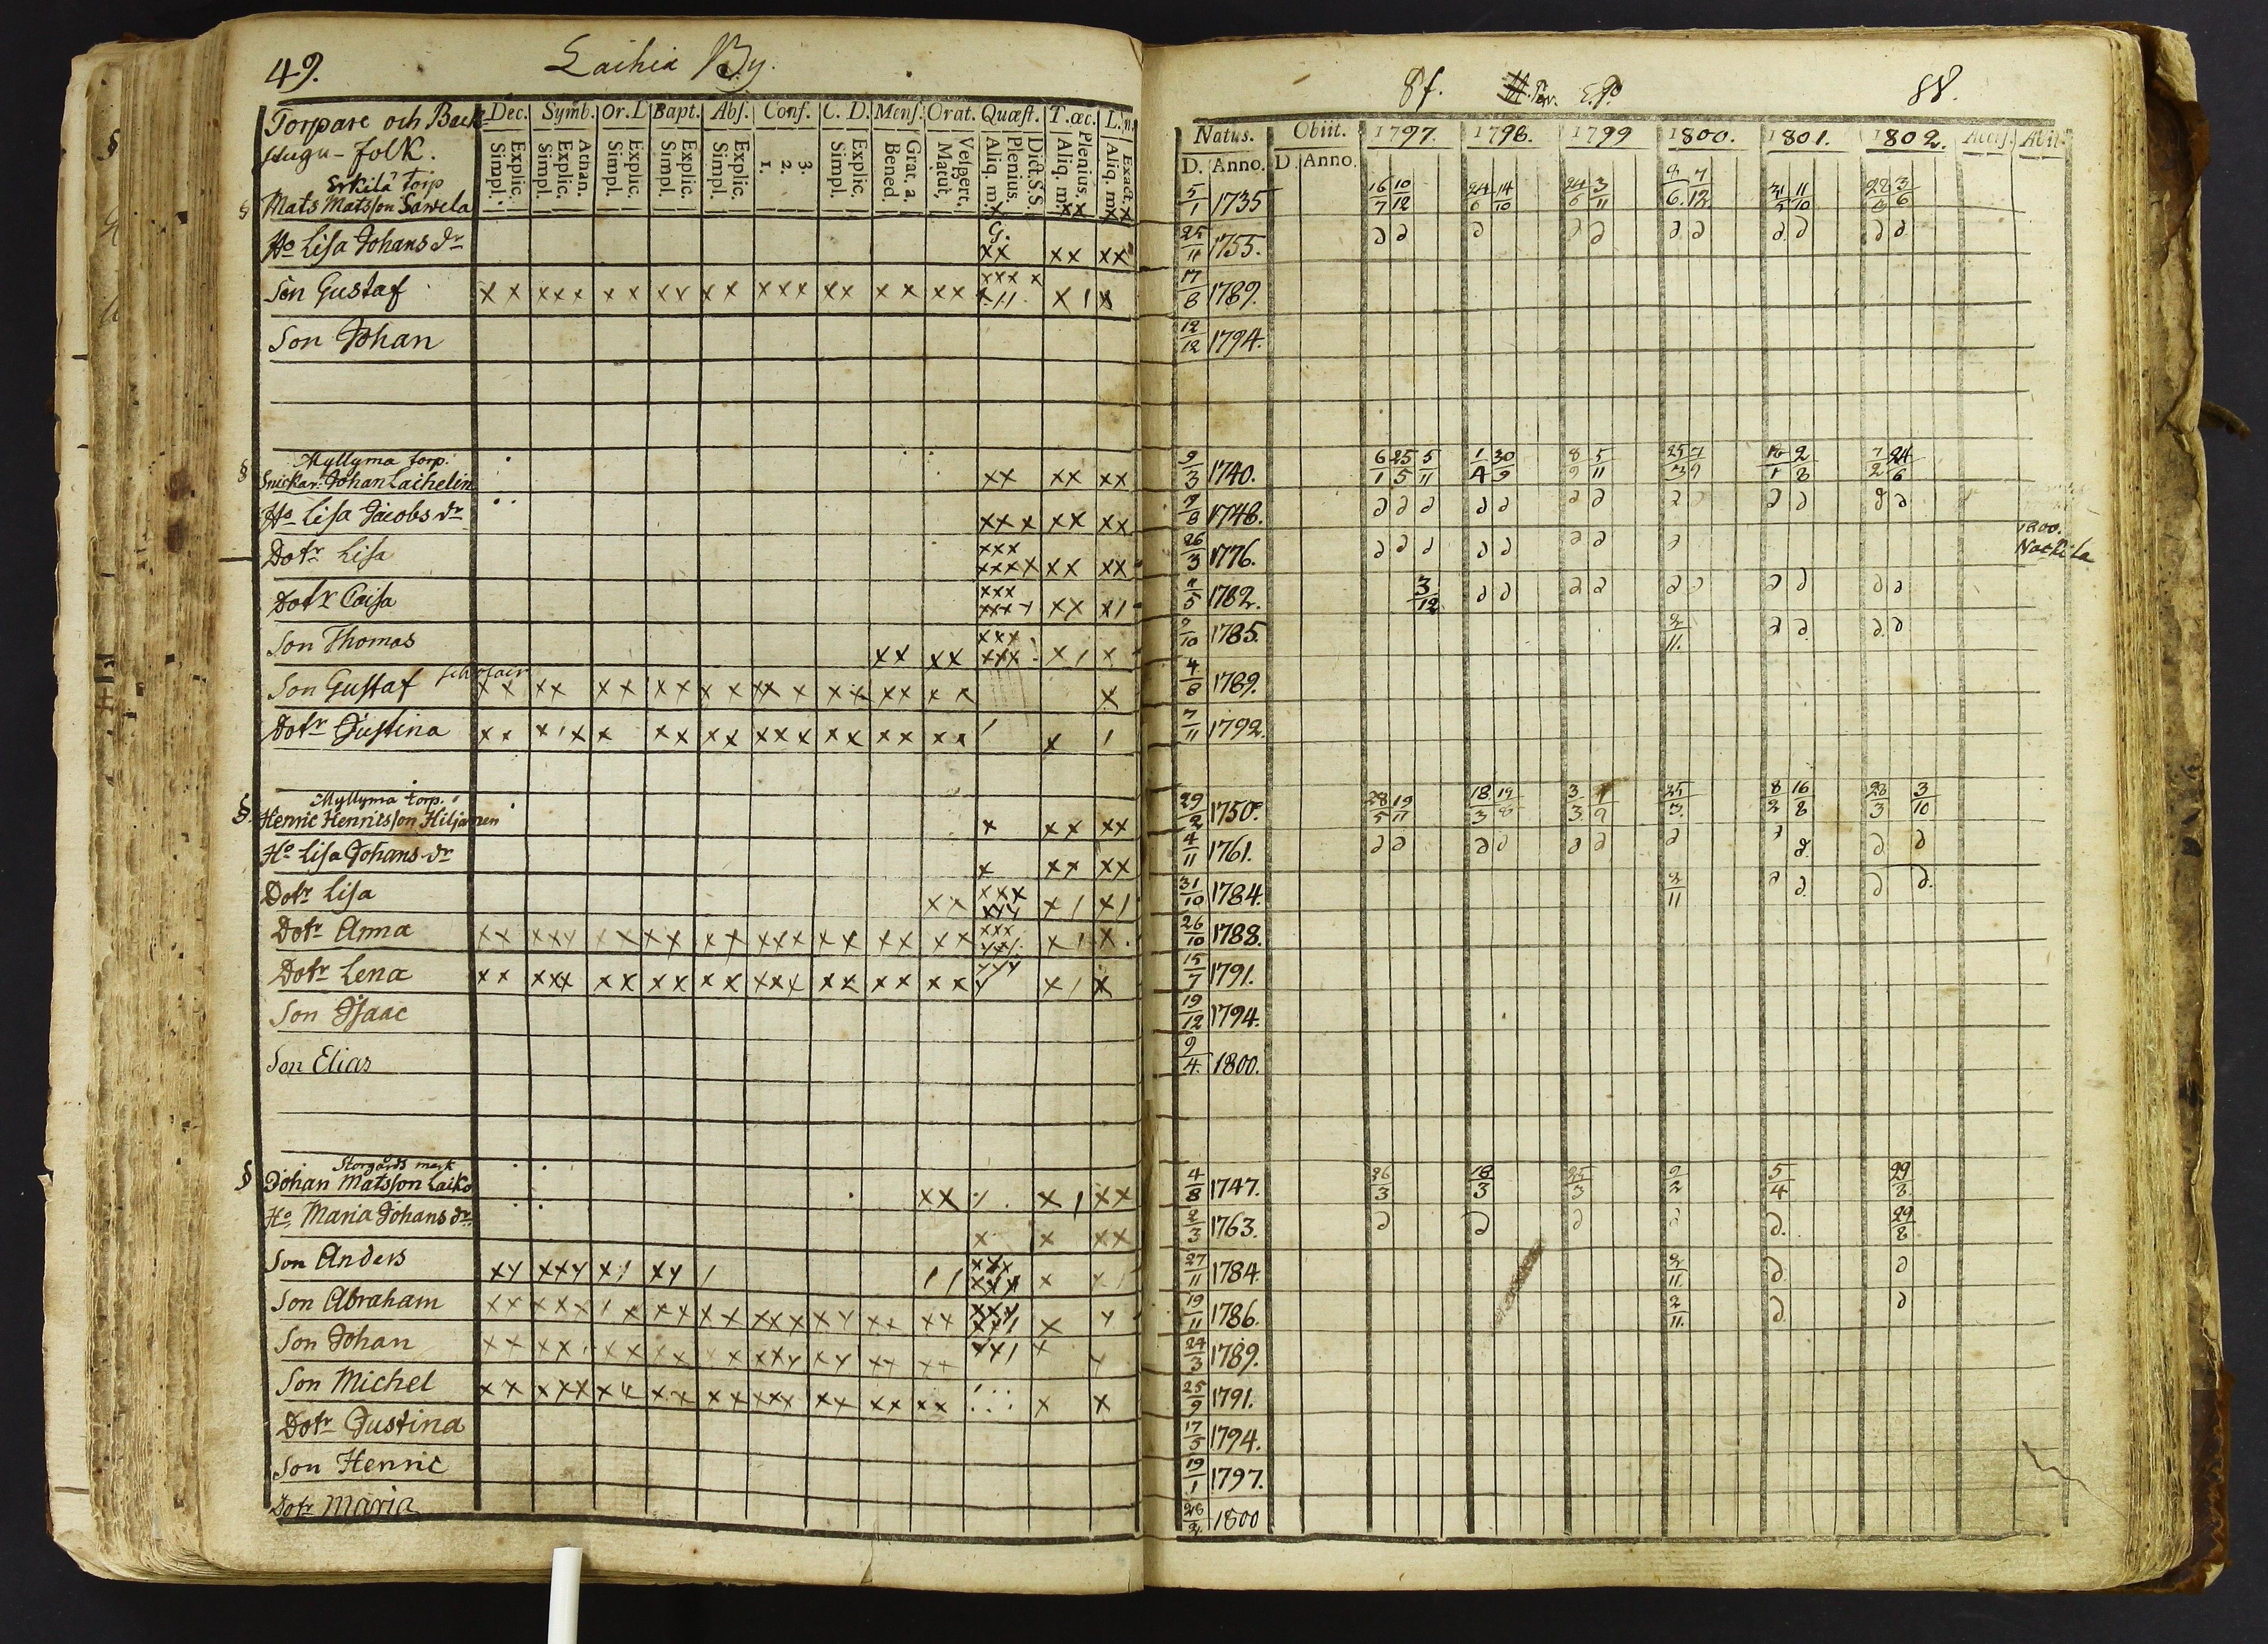 49. Laihia By.
Torpare och Back
stugu-folk.
Dec. Symb. Or. L Bapt. Abs. Conf. C. D. Mens. Orat. Quæst. T. œc. L. n.
Simpl. Explic. Simpl. Explic. Athan. Simpl. Explic. Simpl. Explic. Simpl. Explic. 1. 2. 3. Simpl. Explic. Bened. Grat. a. Matut. Vespert. Aliq. m. Plenius. Dict. S.S. Aliq. m. Plenius. Aliq. m. Exact.
8f. E.P. 88.
Natus. Obiit. 1797. 1798. 1799 1800. 1801. 1802. Access. Abit.
D. Anno. D. Anno.
Erkilä torp
§ Mats Matsson Sawela x xx xx 5/1 1735 16/7 10/12 24/6 14/10 24/6 3/11 2/6. 7/12. 31/5 11/10 28/3 3/6
Ho Lisa Johans dr xx xx xx 25/11 1755. d d d d d d d d d d d
Son Gustaf xx xxx xx xx xx xxx xx xx xx xxx x x 11 x 1 x 17/8 1789.
Son Johan 12/12 1794.
Myllyma torp.
§ Snickar. Johan Laihelin xx xx xx 9/3 1740. 6/1 25/5 5/11 1/4 30/9 8/9 5/11 25/3 7/9 2/8 7/2 24/6
Ho Lisa Jacobs dr xxx xx xx 9/8 1748. d d d d d d d d d d d d d
Dotr Lisa xxx xxxx xx xx 26/3 1776. d d d d d d d d 1800. Nackila
Dotr Caisa xxx xxxx xx x1 11/5 1782. 3/12 d d d d d d d d d d
Son Thomas xx xx xxx xxx x 1 x 9/10 1785. 2/11. d d d d
Son Gustaf xx xx xx xx xx xx x xx xx xx x 4/8 1789.
Dotr Justina xx x1x x xx xx xxx xx xx xx 1 x 1 7/11 1792.
Myllyma torp.
§. Henric Henricsson Hiljanen x xx xx 29/2 1750. 28/5 19/11 18/3 19/8 3/3 25/3. 8/2 16/8 28/3 3/10
Ho Lisa Johans dr x xx xx 4/11 1761. d d d d d d d d d. d d
Dotr Lisa xx xxx xxx x 1 x1 31/10 1784. 2/11 d d. d d.
Dotr Anna xx xxx xx xx xx xxx xx xx xx xxx x 1 x. 26/10 1788.
Dotr Lena xx xxx xx xx xx xxx xx xx xx xxx x 1 x 15/7 1791.
Son Isaac 19/12 1794.
Son Elias 9/4. 1800.
Storgårds mark
§ Johan Matsson Laiko xx x 1 xx 4/8 1747. 26/3 18/3 25/3 2/2 5/4 29/8
Ho Maria Johans dr x x xx 2/3 1763. d d d d d. 29/8
Son Anders xx xxx x1 xx 1 11 xxx xxx x x1 27/11 1784. 2/11. d. d
Son Abraham xx xxx 1x xx xx xxx xx xx xx xxx xx1 x x 19/11 1786. 2/11. d. d
Son Johan xx xx xx xx xx xxx xx xx xx xx1 x x 24/3 1789.
Son Michel xx xxx xx xx xx xxx xx xx xx x x 25/9 1791.
Dotr Justina 17/5 1794.
Son Henric 19/1 1797.
Dotr Maria 1800